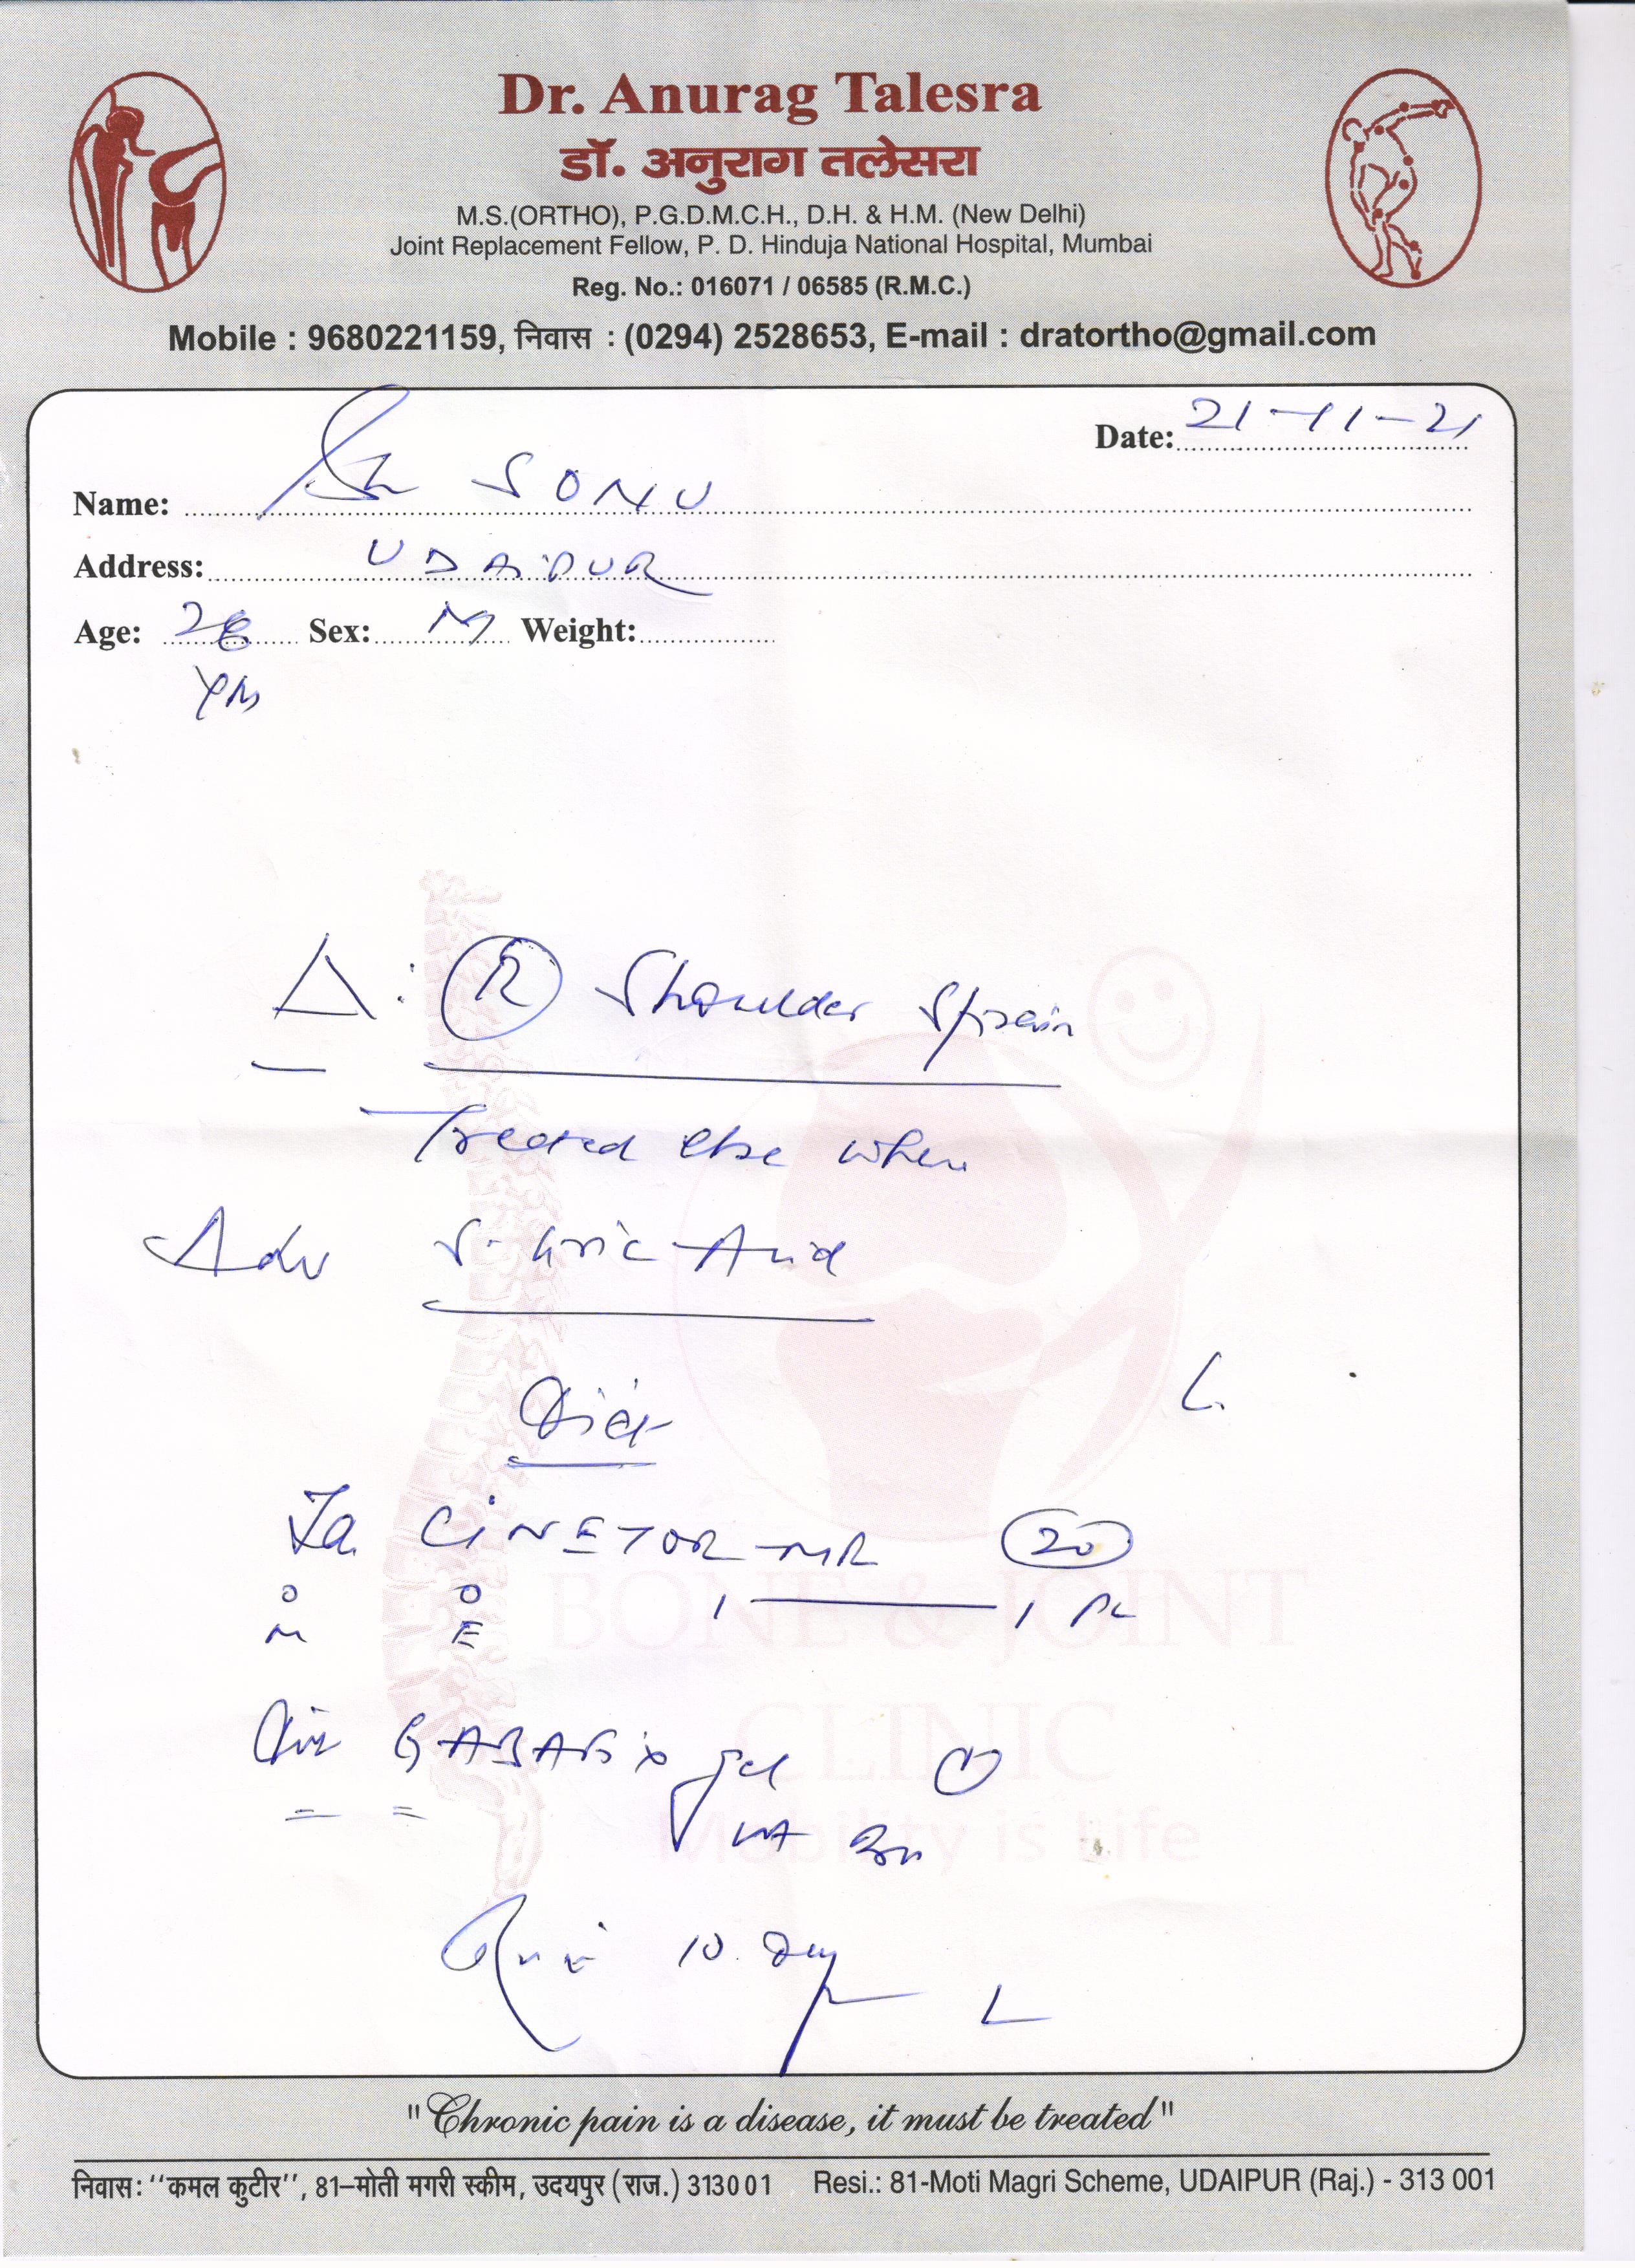 Dr. Anurag Talesra
डॉ. अनुराग तलेसरा
M.S.(ORTHO), P.G.D.M.C.H., D.H. & H.M. (New Delhi)
Joint Replacement Fellow, P. D. Hinduja National Hospital, Mumbai
Reg. No.: 016071 / 06585 (R.M.C.)
Mobile : 9680221159, निवास : (0294) 2528653, E-mail : dratortho@gmail.com
Date: 21-11-21
Name: SONU
Address: UDAIPUR
Age: Sex: M Weight:
Δ: R Shoulder Sprain
Treated else where
Adv S. Uric Acid
Diet
CINETOR-MR 20
O O 1 — 1
M E
BONE & JOINT
CLINIC
gel
Mobility is Life
10 day
"Chronic pain is a disease, it must be treated"
निवास: "कमल कुटीर", 81–मोती मगरी स्कीम, उदयपुर (राज.) 313001 Resi.: 81-Moti Magri Scheme, UDAIPUR (Raj.) - 313 001